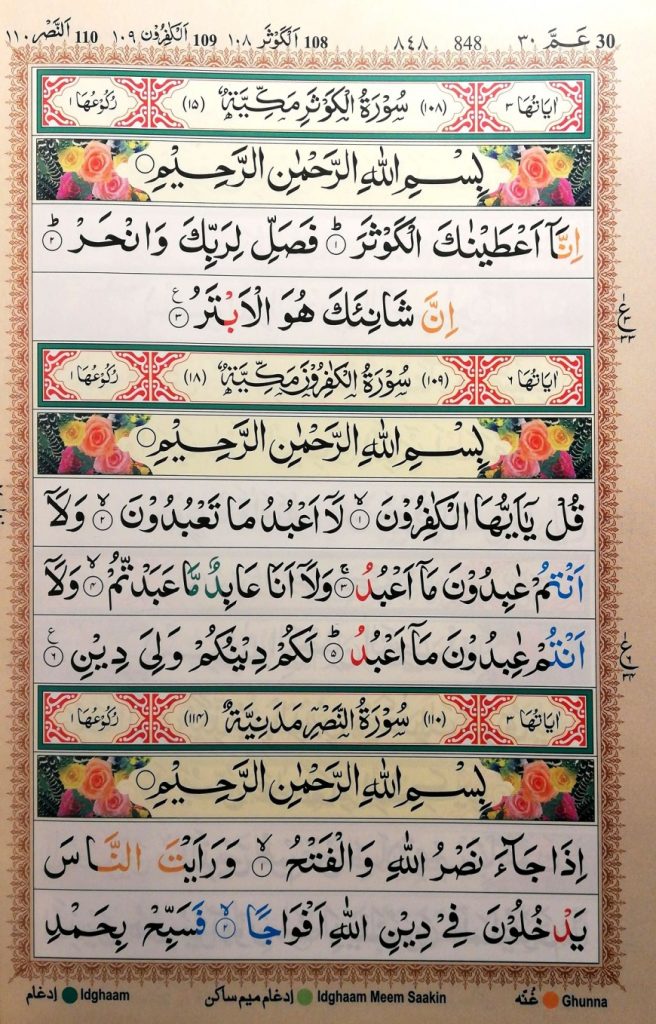 30 عَمَّ ٣٠ 848 ٨٤٨ 108 اَلْكَوْثَر ١٠٨ 109 اَلْكٰفِرُوْن ١٠٩ 110 اَلنَّصْر ١١٠
اٰيَاتُهَا ٣ (١٠٨) سُوْرَةُ الْكَوْثَرِ مَكِّيَّةٌ (١٥) رُكُوْعُهَا ١
بِسْمِ اللهِ الرَّحْمٰنِ الرَّحِيْمِ
اِنَّآ اَعْطَيْنٰكَ الْكَوْثَرَ ؕ ١ فَصَلِّ لِرَبِّكَ وَانْحَرْ ؕ ٢
اِنَّ شَانِئَكَ هُوَ الْاَبْتَرُ ٣ ع
اٰيَاتُهَا ٦ (١٠٩) سُوْرَةُ الْكٰفِرُوْنَ مَكِّيَّةٌ (١٨) رُكُوْعُهَا ١
بِسْمِ اللهِ الرَّحْمٰنِ الرَّحِيْمِ
قُلْ يٰٓاَيُّهَا الْكٰفِرُوْنَ ۙ ١ لَآ اَعْبُدُ مَا تَعْبُدُوْنَ ۙ ٢ وَلَآ
اَنْتُمْ عٰبِدُوْنَ مَآ اَعْبُدُ ۚ ٣ وَلَآ اَنَا عَابِدٌ مَّا عَبَدْتُّمْ ۙ ٤ وَلَآ
اَنْتُمْ عٰبِدُوْنَ مَآ اَعْبُدُ ؕ ٥ لَكُمْ دِيْنُكُمْ وَلِيَ دِيْنِ ٦ ع
اٰيَاتُهَا ٣ (١١٠) سُوْرَةُ النَّصْرِ مَدَنِيَّةٌ (١١٤) رُكُوْعُهَا ١
بِسْمِ اللهِ الرَّحْمٰنِ الرَّحِيْمِ
اِذَا جَآءَ نَصْرُ اللهِ وَالْفَتْحُ ۙ ١ وَرَاَيْتَ النَّاسَ
يَدْخُلُوْنَ فِيْ دِيْنِ اللهِ اَفْوَاجًا ۙ ٢ فَسَبِّحْ بِحَمْدِ
Ghunna غُنّه Idghaam Meem Saakin اِدغام ميم ساكن Idghaam اِدغام